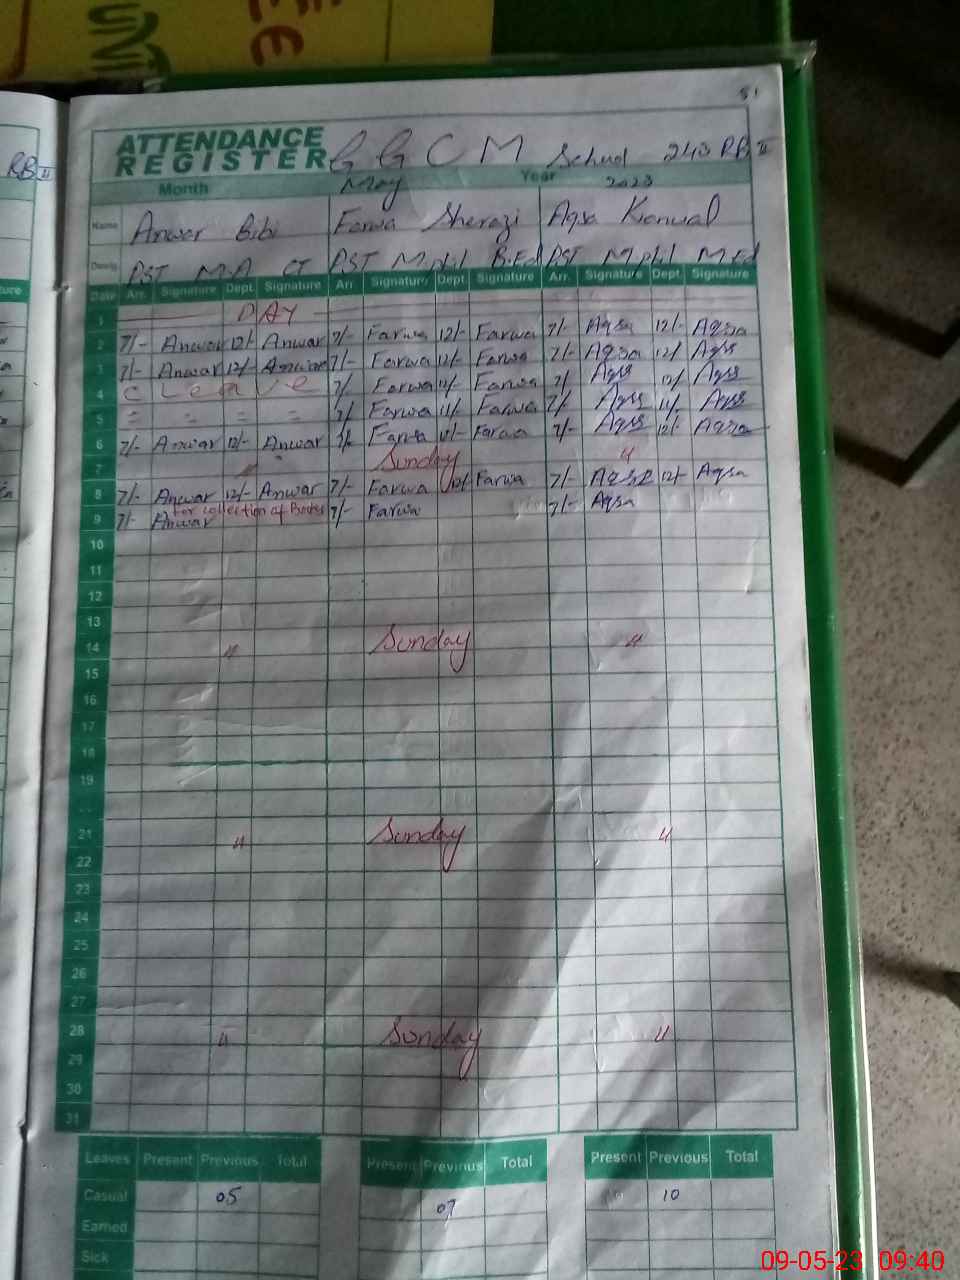 51
ATTENDANCE
REGISTER G G C M School 243 RB II
Month May Year 2023
Name Anwar Bibi Farwa Sherazi Aqsa Kanwal
Desig. PST M.A CT PST M.phil B.Ed PST M.phil M.Ed
Date Arr. Signature Dept. Signature Arr. Signature Dept. Signature Arr. Signature Dept. Signature
1 DAY
2 7/- Anwar 12/- Anwar 7/- Farwa 12/- Farwa 7/- Aqsa 12/- Aqsa
3 7/- Anwar 12/- Anwar 7/- Farwa 12/- Farwa 7/- Aqsa 12/ Aqsa
4 C Leave 7/ Farwa 12/- Farwa 7/ Aqsa 12/ Aqsa
5 = = = = 7/ Farwa 11/- Farwa 7/- Aqsa 11/- Aqsa
6 7/- Anwar 12/- Anwar 7/- Farwa 12/- Farwa 7/- Aqsa 12/- Aqsa
7 " Sunday "
8 7/- Anwar 12/- Anwar 7/- Farwa 12/- Farwa 7/- Aqsa 12/- Aqsa
for collection of Books
9 7/- Anwar 7/- Farwa 7/- Aqsa
10
11
12
13
14 " Sunday "
15
16
17
18
19
21 " Sunday "
22
23
24
25
26
27
28 " Sunday "
29
30
31
Leaves Present Previous Total Present Previous Total Present Previous Total
Casual 05 07 10
Earned
Sick
RB II
09-05-23 09:40